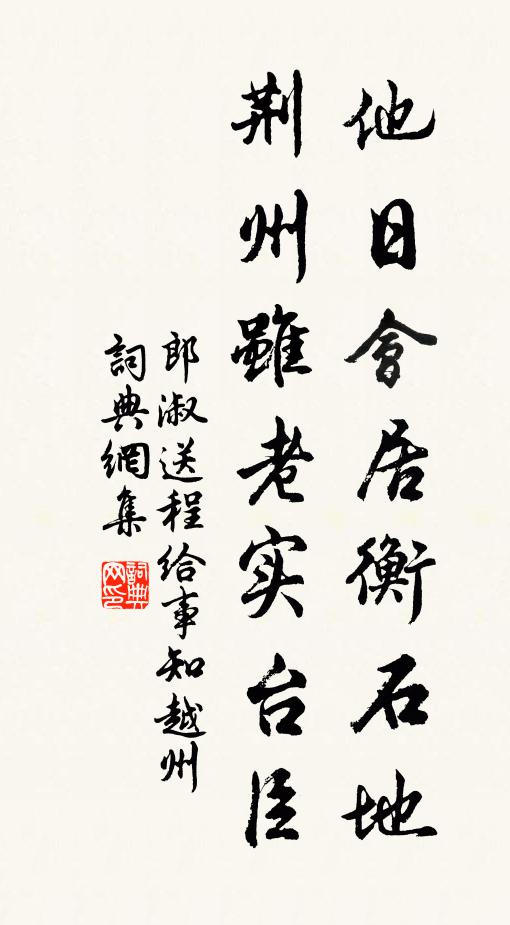 他日會居衡石地
荆州雖老实台臣
郎淑送程给事知越州
詞典網集
詞典网印